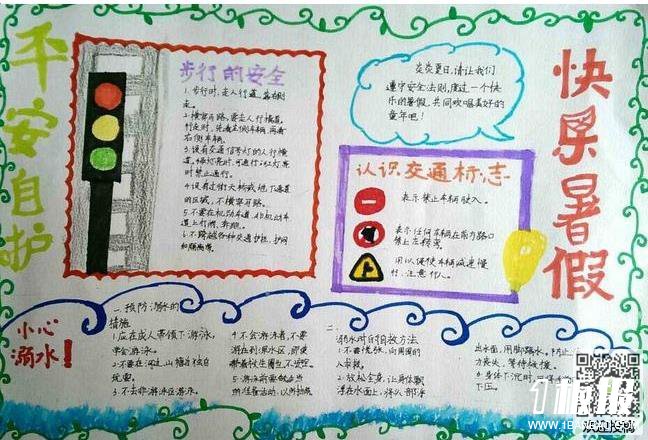 平安自护
步行的安全
1.步行时,走人行道,靠右侧
走。
2.横穿马路,要走人行横道,
行走时,先看左侧车辆,再看
右侧车辆。
3.设有交通信号灯的人行横
道,绿灯亮时,可通行;红灯亮
时禁止通行。
4.设有过街天桥或地下通道
的区域,不横穿马路。
5.不要在机动车道、非机动车
道上打闹、奔跑。
6.不跨越各种交通护栏、护网
和隔离带。
炎炎夏日,请让我们
遵守安全法则,度过一个快
乐的暑假,共同欢唱美好的
童年吧!
快乐暑假
认识交通标志
表示禁止车辆驶入。
表示任何车辆在前方路口
禁止左转弯。
用以促使车辆减速慢
行,注意行人。
小心
溺水!
一、预防溺水的
措施
1.应在成人带领下游泳,
学会游泳。
2.不要在河边、山塘边独自
玩耍。
3.不去非游泳区游泳。
4.不会游泳者,不要
游到深水区,即使
带着救生圈也不安全。
5.游泳前要做适当
的准备活动,以防抽筋
二、
溺水时的自救方法
1.不要慌张,向周围的
人求救。
2.放松全身,让身体飘
浮在水面上,将头部浮
出水面,用脚踢水,防止
力丧失,等待救援。
3.身体下沉时,
下压。
1板报
www.1BANBAO.com